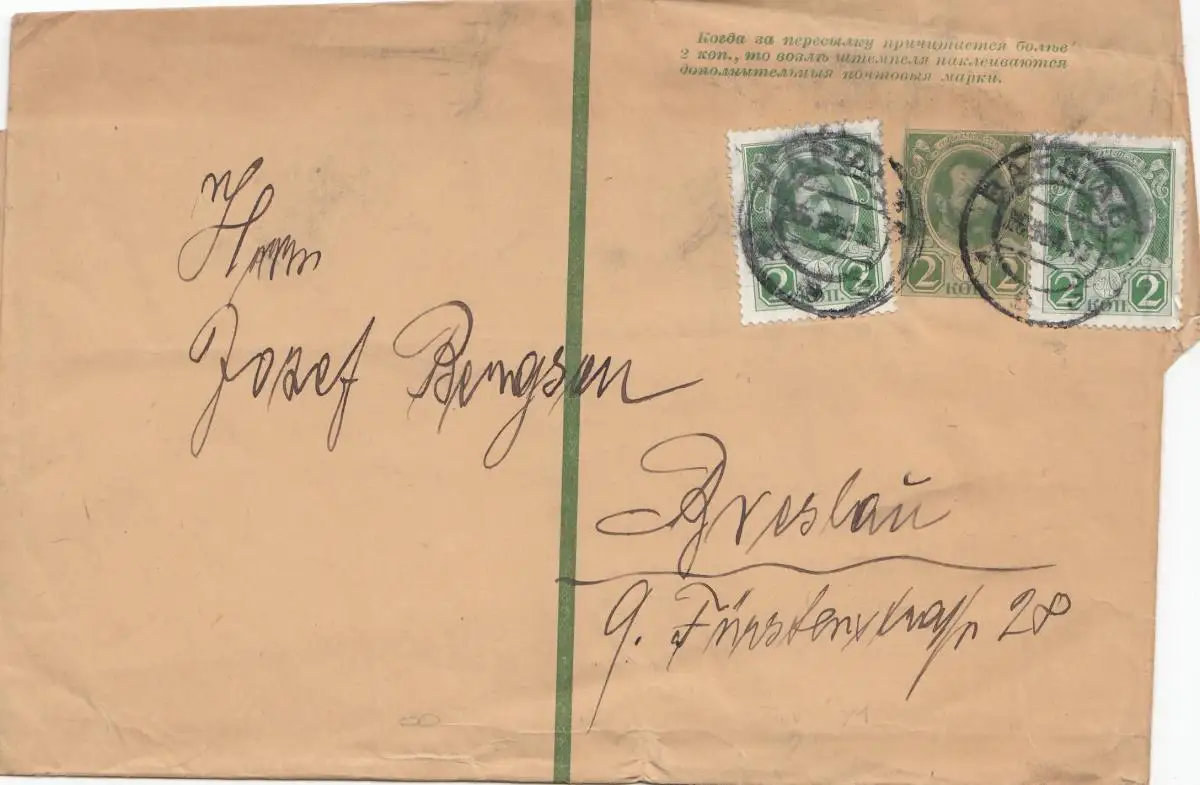 Когда за пересылку причитается болѣе
2 коп., то возлѣ штемпеля наклеиваются
дополнительныя почтовыя марки.
ВАРШАВА
2 КОП. 2
2 КОП. 2
2 КОП. 2
Herrn
Jozef Bengson
Breslau
9. Fürstenstraße 28